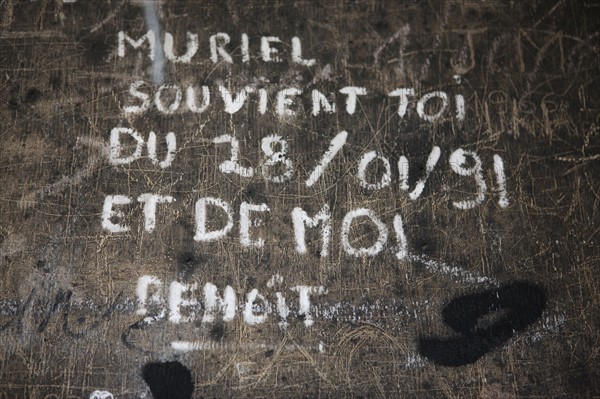 MURIEL
SOUVIENT TOi
DU 28/01/91
Et DE MOi
BEMOÎT